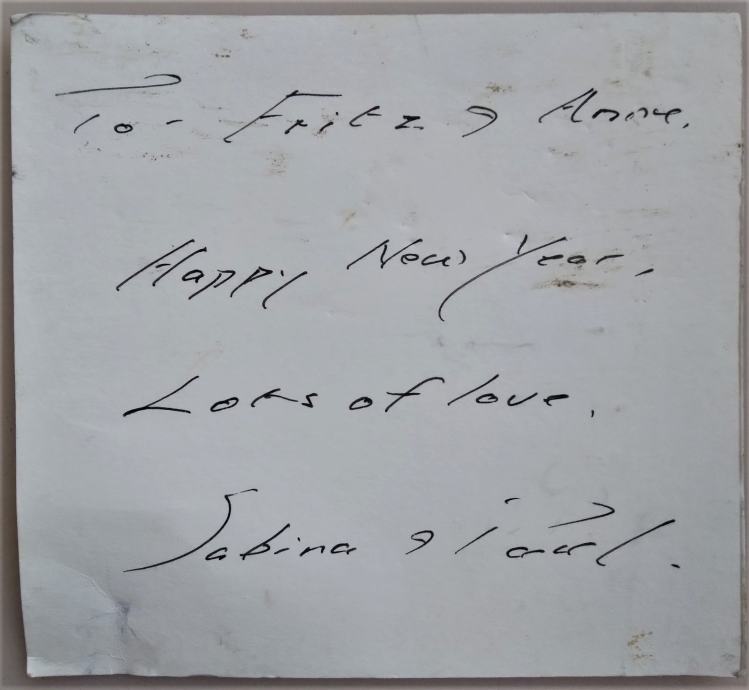 To- Fritz & Anne.
Happy New Year.
Lots of love.
Sabina & Paul.